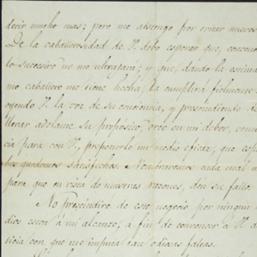 decir mucho mas; pero me abstengo por evitar nuevos
De la caballerosidad de V. debo esperar que, conocien
lo sucesivo no me ultrajará; y que, dando la
mo caballero me tiene hecha, la cumplirá fielmente
oyendo V. la voz de su conciencia, y prescindiendo de
llevar adelante su propósito, creo en un deber,
cia para con V., proponerle un medio eficaz, que
los quedemos satisfechos. Nombraremos cada cual
para que en vista de nuestras razones, den su fallo.
No prescindiré de este negocio por ningun
dios esten á mi alcance, a fin de convencer á V.
ticia con que me imputa tan odiosas faltas.